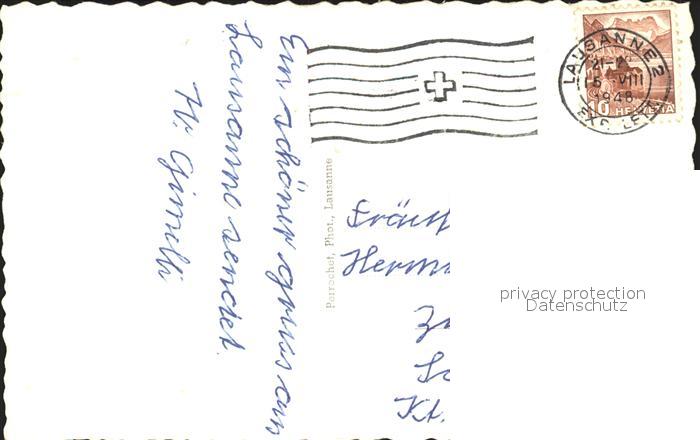 Ein schöner gruss aus
Lausanne sendet.
W. Gimelli
Perrochet, Phot., Lausanne
LAUSANNE 2
VIII
1948
10 HELVETIA
Herm
Kt.
privacy protection
Datenschutz